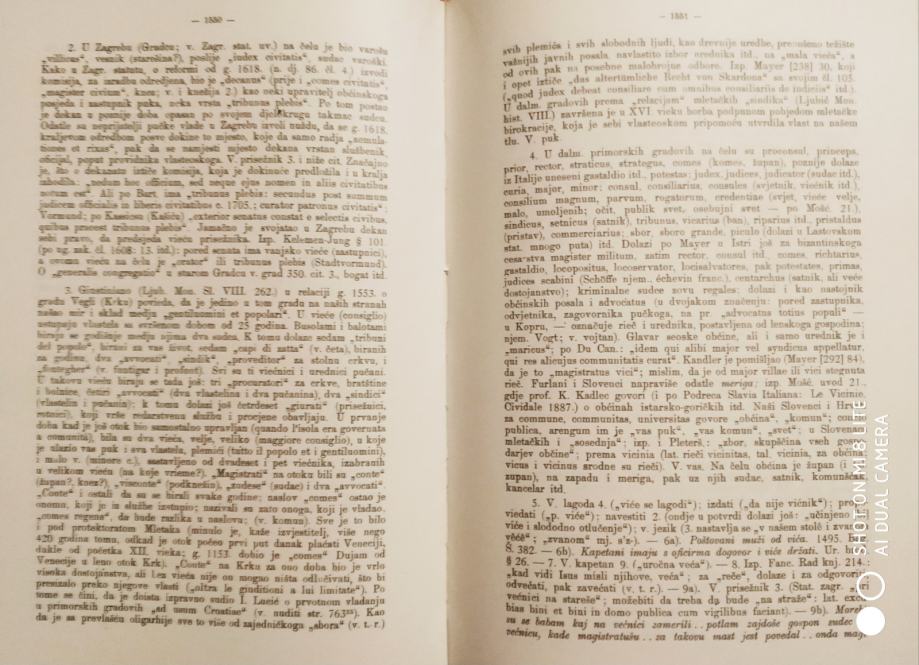 — 1550 —
2. U Zagrebu (Gradcu; v. Zagr. stat. uv.) na čelu je bio varošu
„villicus“, vesnik (starešina?), poslije „iudex civitatis“, sudac varoški.
Kako u Zagr. statutu, o reformi od g. 1618. (n. dj. 86. čl. 4.) izvodi
komisija, za naradbu odredjena, bio je „decanus“ (prije i „comes civitatis“,
„magister civium“, knez; v. i knežija 2.) kao neki upravitelj občinskoga
posjeda i zastupnik puka, neka vrsta „tribunus plebis“. Po tom postao
je dekan u poznije doba opasan po svojem djelokrugu takmac sudca.
Odatle su neprijatelji pučke vlade u Zagrebu izveli nuždu, da se g. 1618.
kraljevom odredbom posve dokine to mjesto, koje da samo radja „aemula-
tiones et rixas“, pak da se namjesti mjesto dekana vrstan službenik,
oficijal, poput providnika vlasteoskoga. V. prisežnik 3. i niže cit. Značajno
je, što o dekanatu iztiče komisija, koja je dokinuće predložila i u kralja
izhodila: „nedum hoc officium, sed neque ejus nomen in aliis civitatibus
notum est“. Ali po Bart ima „tribunus plebis: secundus post summum
judicem officialis in liberis civitatibus c. 1705.; curator patronus civitatis“;
Vormund; po Kassiosu (Kašiću) „exterior senatus constat e selectis civibus,
quibus praeest tribunus plebis“. Jamačno je svojatao u Zagrebu dekan
sebi pravo, da predsjeda vieću prisežnika. Izp. Kelemen-Jung § 101.
(po ug. zak. čl. 1608: 13. itd.): pored senata ima vanjsko vieće (zastupnici),
a ovomu vieću na čelu je „orator“ ili tribunus plebis (Stadtvormund).
O „generalis congregatio“ u starom Gradcu v. grad 350. cit. 3., bogat itd.
3. Giustiniano (Ljub. Mon. Sl. VIII. 262.) u relaciji g. 1553. o
gradu Vegli (Krku) povieda, da je jedino u tom gradu na naših stranah
našao mir i sklad medju „gentiluomini et popolari“. U vieće (consiglio)
ustupaju vlastela sa svršenom dobom od 25 godina. Busolami i balotami
biraju se godišnje medju njima dva sudca. K tomu dolaze sedam „tribuni
del popolo“, birani za vas život, sedam „capi di zatta“ (v. četa), biranih
za godinu, dva „avvocati“, „sindik“, „proveditor“ za stolnu crkvu, i
„fontegher“ (v. fontigar i profont). Svi su ti viećnici i urednici pučani.
U takovu vieću biraju se tada još: tri „procuratori“ za erkve, bratštine
i bolnice, četiri „avvocati“ (dva vlastelina i dva pučanina), dva „sindici“
(vlastelin i pučanin); k tomu dolazi još četrdeset „giurati“ (prisežnici,
rotnici), koji vrše redarstvenu službu i procjene obavljaju. U prvanje
doba kad je još otok bio samostalno upravljan (quando l'isola era governata
a comunità), bila su dva vieća, velje, veliko (maggiore consiglio), u koje
je ulazio vas puk i sva vlastela, plemići (tutto il popolo et i gentiluomini),
i malo v. (minore c.), sastavljeno od dvadeset i pet viećnika, izabranih
u velikom vieću (na koje vrieme?). „Magistrati“ na otoku bili su „conte“
(župan?, knez?), „visconte“ (podknežin), „zudese“ (sudac) i dva „avvocati“.
„Conte“ i ostali da su se birali svake godine; naslov „comes“ ostao je
onomu, koji je iz službe izstupio; nazivali su zato onoga, koji je vladao,
„comes regens“, da bude razlika u naslovu; (v. komun). Sve je to bilo
i pod protektoratom Mletaka (minulo je, kaže izvjestitelj, više nego
420 godina tomu, odkad je otok počeo prvi put danak plaćati Veneciji,
dakle od početka XII. vieka; g. 1153 dobio je „comes“ Dujam od
Venecije u leno otok Krk). „Conte“ na Krku za ono doba bio je vrlo
visoka dostojanstva, ali bez vieća nije on mogao ništa odlučivati, što bi
presizalo preko njegove vlasti („oltra le giuditioni a lui limitate“). Po
tome se čini, da je doista izpravno sudio I. Lucić o prvotnom vladanju
u primorskih gradovih „ad usum Croatiae“ (v. nuditi str. 763). Kao
da je za prevlašću oligarhije sve to više od zajedničkoga „sbora“ (v. t. r.)
— 1551 —
svih plemića i svih slobodnih ljudi, kao drevnije uredbe, prenošeno težište
važnijih javnih posala, navlastito izbor urednika itd., na „mala vieća“, a
od ovih pak na posebne malobrojne odbore. Izp. Mayer [238] 30, koji
i opet iztiče „das altertümliche Recht von Skardona“ sa svojim čl. 105.
(„quod judex debeat consiliare cum omnibus consiliariis de indiciis“ itd.).
U dalm. gradovih prema „relacijam“ mletačkih „sindika“ (Ljubić Mon.
hist. VIII.) završena je u XVI. vieku borba podpunom pobjedom mletačke
birokracije, koja je sebi vlasteoskom pripomoću utvrdila vlast na našem
tlu. V. puk.
4. U dalm. primorskih gradovih na čelu su proconsul, princeps,
prior, rector, straticus, strategus, comes (komes, župan), poznije dolaze
iz Italije uneseni gastaldio itd., potestas: judex, judices, adjudicator (sudac itd.),
curia, major, minor: consul, consiliarius, consules (svjetnik, viećnik itd.),
consilium magnum, parvum, rogatorum, credentiae (svjet, vieće velje,
malo, umoljenih; očit, publik svet, osobujni svet — po Mošć. 21.),
sindicus, setnicus (satnik), tribunus, vicarius (ban), riparius itd., pristaldus
(pristav), commerciarius; sbor, sboro grande, piculo (dolazi u Lastovskom
stat. mnogo puta) itd. Dolazi po Mayer u Istri još za bizantinskoga
cesarstva magister militum, zatim rector, consul itd., comes, richtarius,
gastaldio, locopositus, locoservator, locisalvatores, pak potestates, primas,
judices scabini (Schöffe njem., échevin franc.), centarchus (satnik, ali veće
dostojanstvo); kriminalne sudce zovu regales; dolazi i kao nastojnik
občinskih posala i advocatus (u dvojakom značenju: pored zastupnika,
odvjetnika, zagovornika pučkoga, na pr. „advocatus totius populi“ —
u Kopru, — označuje rieč i urednika, postavljena od lenskoga gospodina;
njem. Vogt; v. vojtan). Glavar seoske občine, ali i samo urednik je i
„maricus“; po Du Can.: „idem qui alibi major vel syndicus appellatur,
qui res alicujus communitatis curat“. Kandler je pomišljao (Mayer [292] 84),
da je to „magistratus vici“; mislim, da je od major villae ili vici stegnuta
rieč. Furlani i Slovenci napraviše odatle meriga; izp. Mošć. uvod 21..
gdje prof. K. Kadlec govori (i po Podreca Slavia Italiana: Le Vicinie,
Cividale 1887.) o občinah istarsko-goričkih itd. Naši Slovenci i Hrv
za commune, communitas, universitas govore „občina“, „komun“; com
publica, arengum im je „vas puk“, „vas komun“, „svet“; u Slovena
mletačkih i „sosednja“; izp. i Pleterš.: „zbor, skupščina vseh gospo
darjev občine“; prema vicinia (lat. rieči vicinitas, tal. vicinia, za občinu
vicus i vicinus srodne su rieči). V. vas. Na čelu občina je župan (i
zupan), na zapadu i meriga, pak uz njih sudac, satnik, komunšćak
kancelar itd.
5. V. lagoda 4. („viće se lagodi“); izdati („da nije vićnik“); pro
viedati („p. viće“); navestiti 2. (ondje u potvrdi dolazi još: „učinjeno
viće i slododno otlučenje“); v. jezik (3. nastavlja se „v našem stolě i zvan
věćě“; „zvanom“ mj. s'z-). — 6a). Poštovani muži od vića. 1495. Ber
Š. 382. — 6b). Kapetani imaju s oficirma dogovor i viće držati. Ur. bi
§ 26. — 7. V. kapetan 9. („uročna veća“). — 8. Izp. Fanc. Rad knj. 214.:
„kad vidi Isus misli njihove, veća“; za „reče“, dolaze i za odgovoriti,
odvećati, pak zavećati (v. t. r.). — 9a). V. prisežnik 3. (Stat. zagr. „
većnici na starešie“; možebiti da treba da bude „na straže“: lat. excu
bias bini et bini in domo publica cum vigilibus faciant). — 9b). Morebi
su se babam kaj na većnici zamerili.. potlam zajdoše gospon sudec
većnicu, kade magistratušu.. za takovu mast jest povedal.. onda mag.
SHOT ON MI 8 LITE
AI DUAL CAMERA